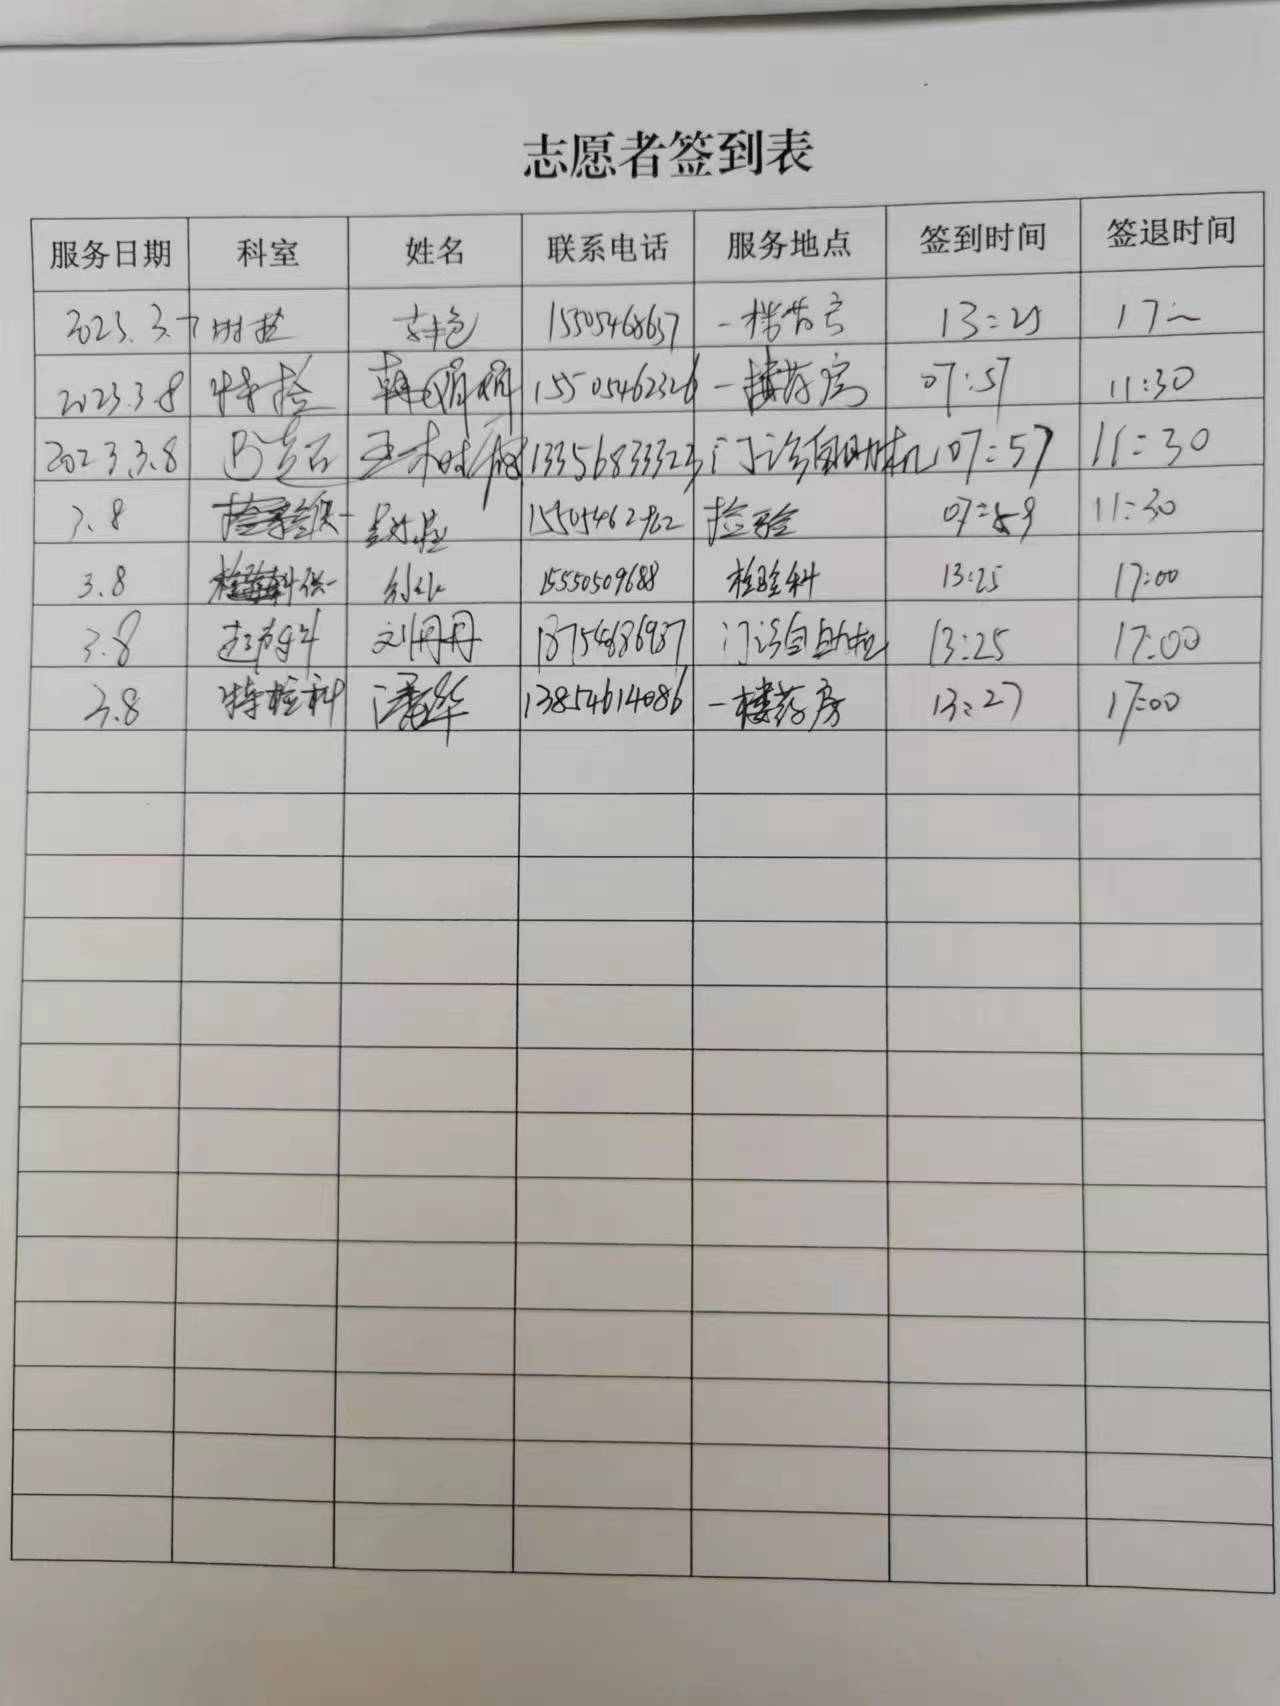 志愿者签到表
服务日期 科室 姓名 联系电话 服务地点 签到时间 签退时间
2023.3.7 15505468657 一楼药房 13:25 17
2023.3.8 特检 韩娟娟 15505462326 一楼药房 07:57 11:30
2023.3.8 B超 13356833323 门诊自助机 07:57 11:30
3.8 15505462962 检验 07:59 11:30
3.8 15550509688 检验科 13:25 17:00
3.8 刘丹丹 18754686937 门诊自助机 13:25 17:00
3.8 特检科 潘华 13854614086 一楼药房 13:27 17:00